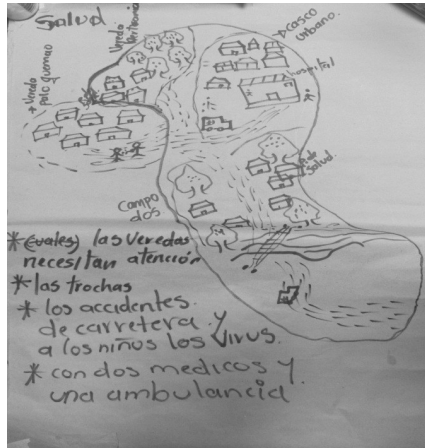 Salud
Vereda
→ casco
urbano.
hospital
→ Vereda
palo quemao
Salud.
campo
dos
* (cuales) las Veredas
necesitan atención
* las trochas
* los accidentes.
de carretera y
a los niños los Virus.
* con dos medicos y
una ambulancia